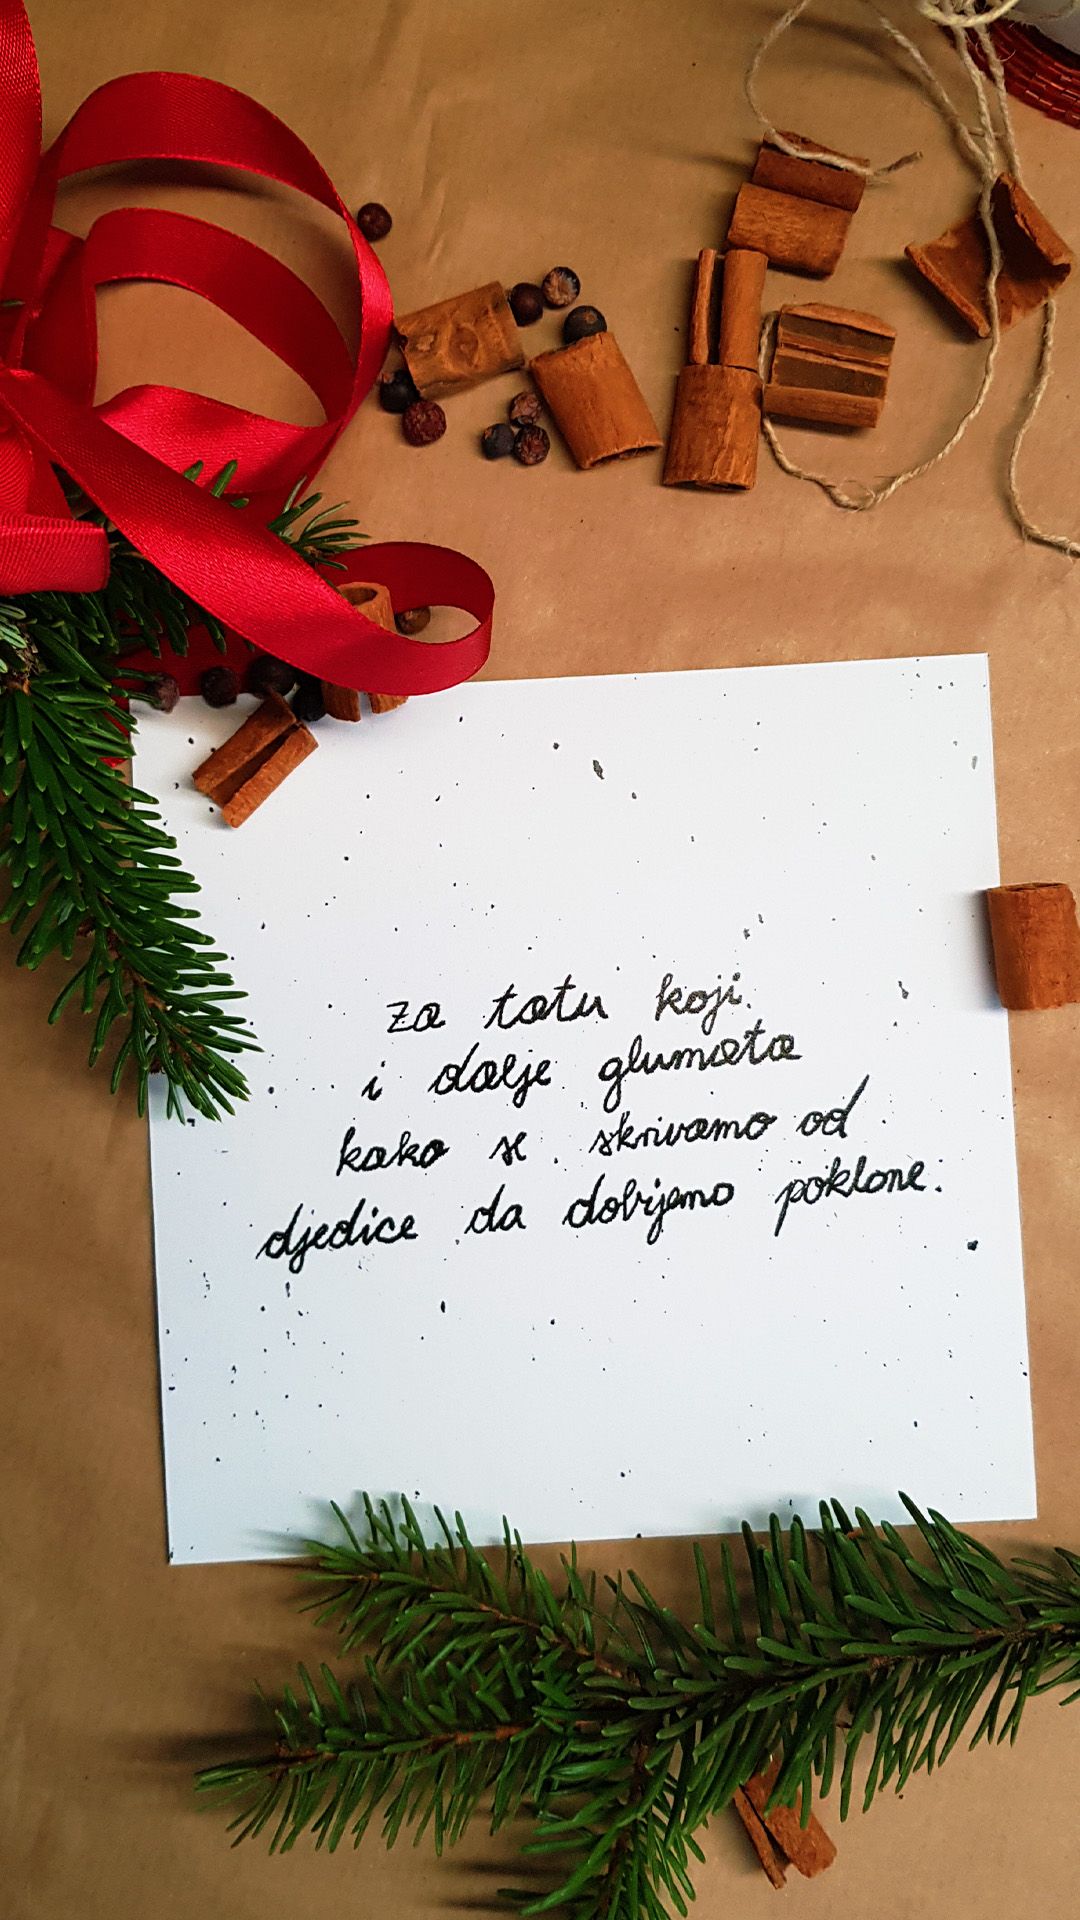 za tatu koji
i dalje glumata
kako se skrivamo od
djedice da dobijemo poklone.